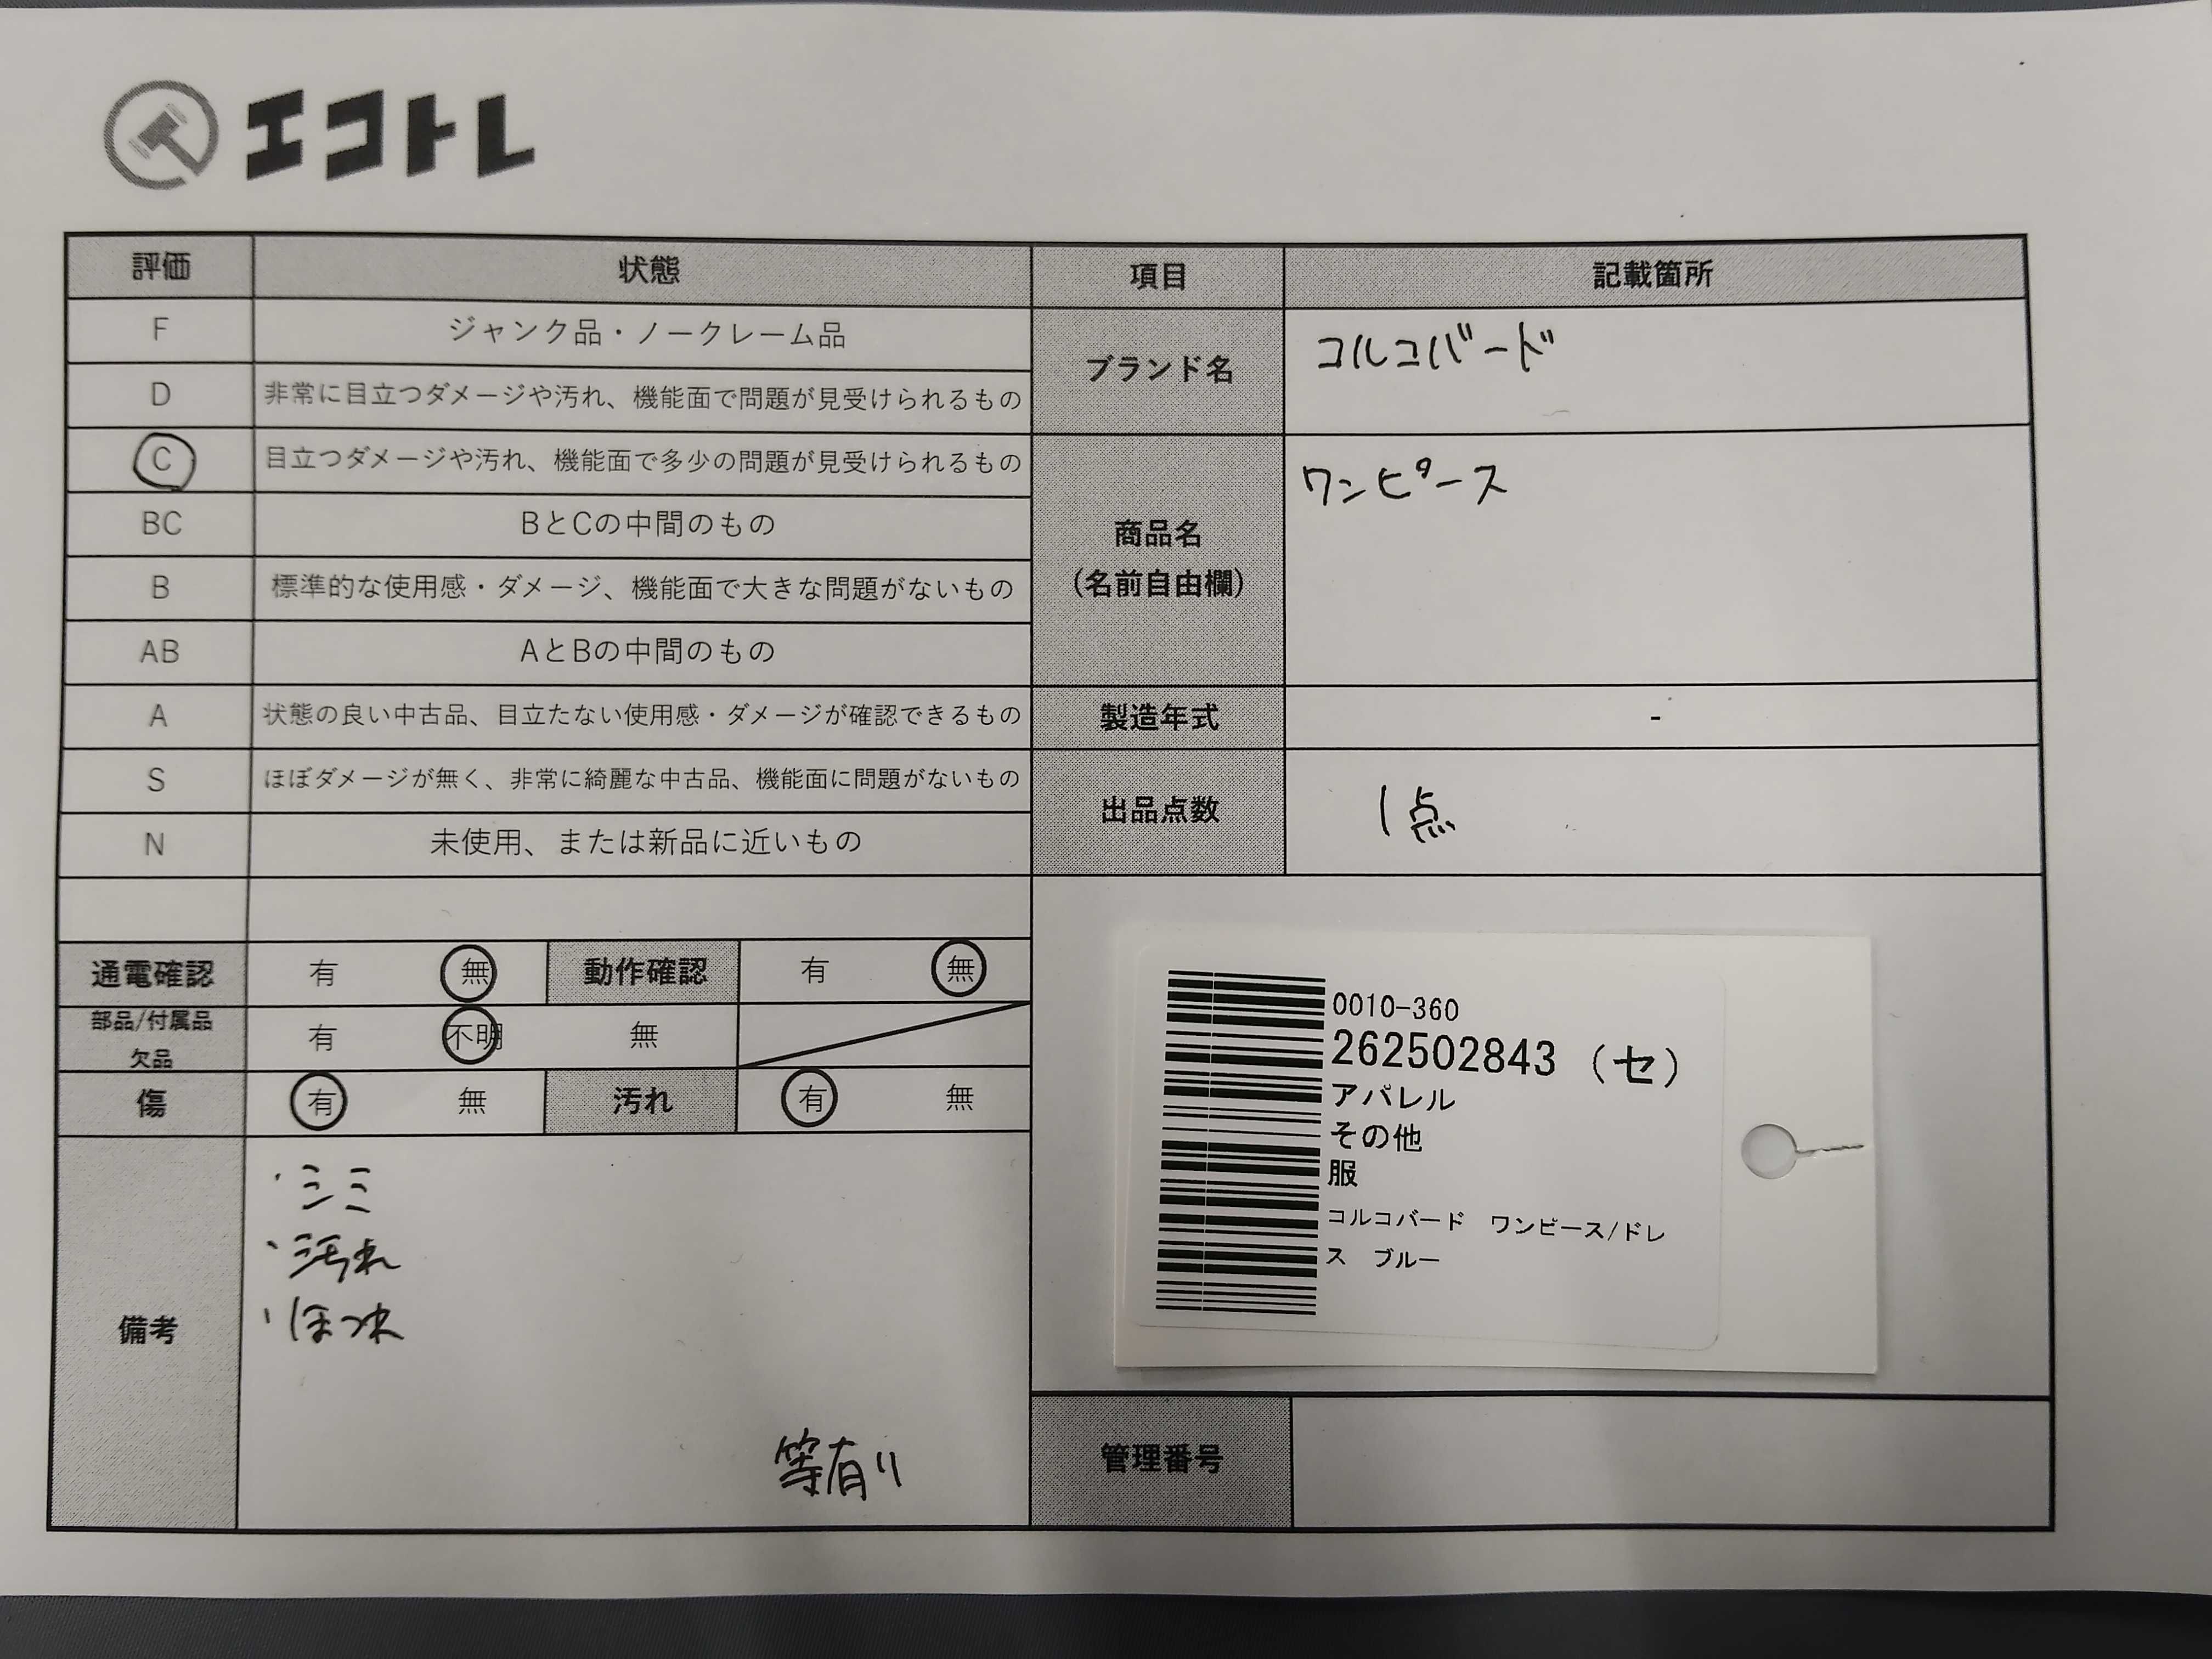 エコトレ
評価 状態
F ジャンク品・ノークレーム品
D 非常に目立つダメージや汚れ、機能面で問題が見受けられるもの
C 目立つダメージや汚れ、機能面で多少の問題が見受けられるもの
BC BとCの中間のもの
B 標準的な使用感・ダメージ、機能面で大きな問題がないもの
AB AとBの中間のもの
A 状態の良い中古品、目立たない使用感・ダメージが確認できるもの
S ほぼダメージが無く、非常に綺麗な中古品、機能面に問題がないもの
N 未使用、または新品に近いもの
通電確認 有 無 動作確認 有 無
部品/付属品
欠品 有 不明 無
傷 有 無 汚れ 有 無
備考
・シミ
・汚れ
・ほつれ
等有り
項目 記載箇所
ブランド名 コルコバード
商品名
(名前自由欄)
ワンピース
製造年式 -
出品点数 1点
0010-360
262502843 (セ)
アパレル
その他
服
コルコバード ワンピース/ドレ
ス ブルー
管理番号